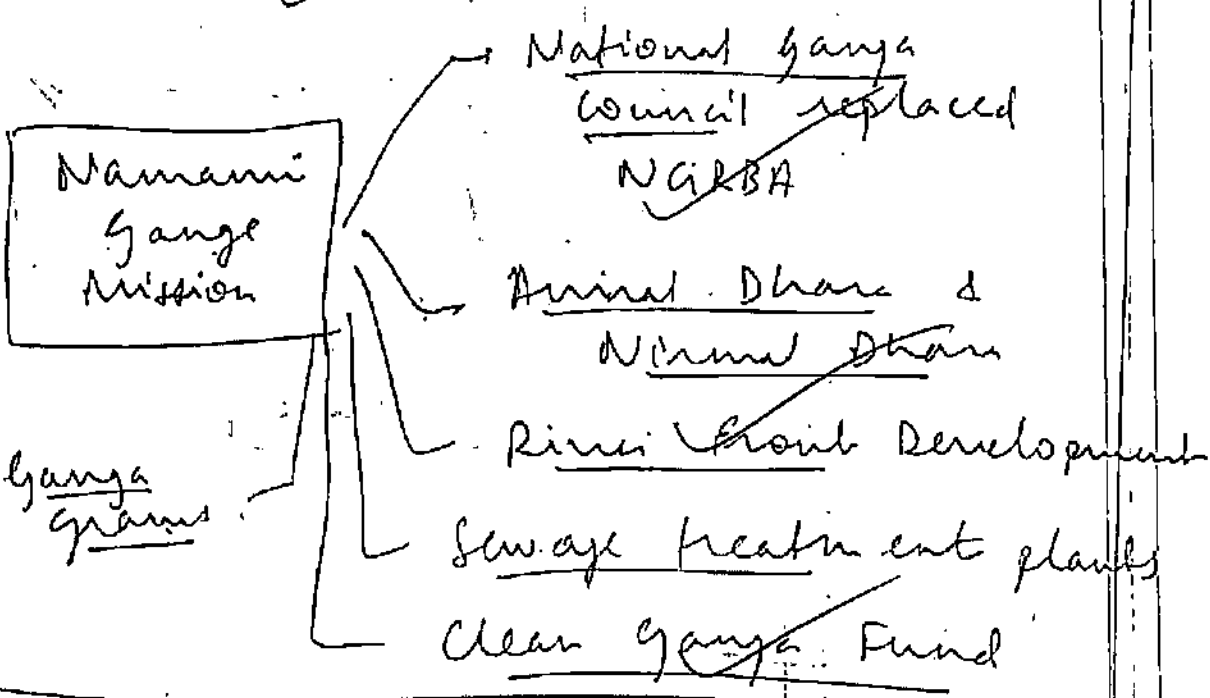 Namami
Gange
Mission
National Ganga
Council replaced
NGRBA
Aviral Dhara &
Nirmal Dhara
River Front Development
Sewage treatment plants
Clean Ganga Fund
Ganga
Grams